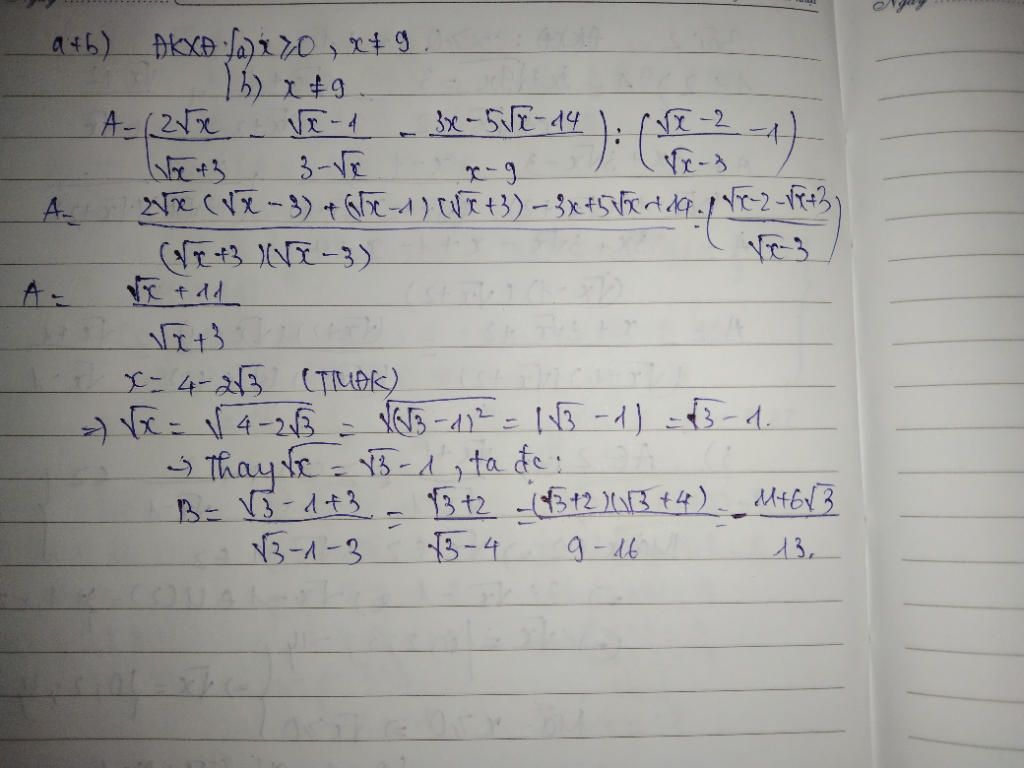 a+b) ĐKXĐ: a) x ≥ 0, x ≠ 9.
b) x ≠ 9.
A = (2√x/(√x+3) - (√x-1)/(3-√x) - (3x-5√x-14)/(x-9)) : ((√x-2)/(√x-3) - 1)
A = (2√x(√x-3) + (√x-1)(√x+3) - 3x+5√x+14)/((√x+3)(√x-3)) : ((√x-2-√x+3)/(√x-3))
A = (√x+11)/(√x+3)
x = 4-2√3 (TMĐK)
=> √x = √(4-2√3) = √((√3-1)²) = |√3-1| = √3-1.
→ Thay √x = √3-1, ta đc:
B = (√3-1+3)/(√3-1-3) = (√3+2)/(√3-4) = (√3+2)(√3+4)/(9-16) = - (11+6√3)/13.